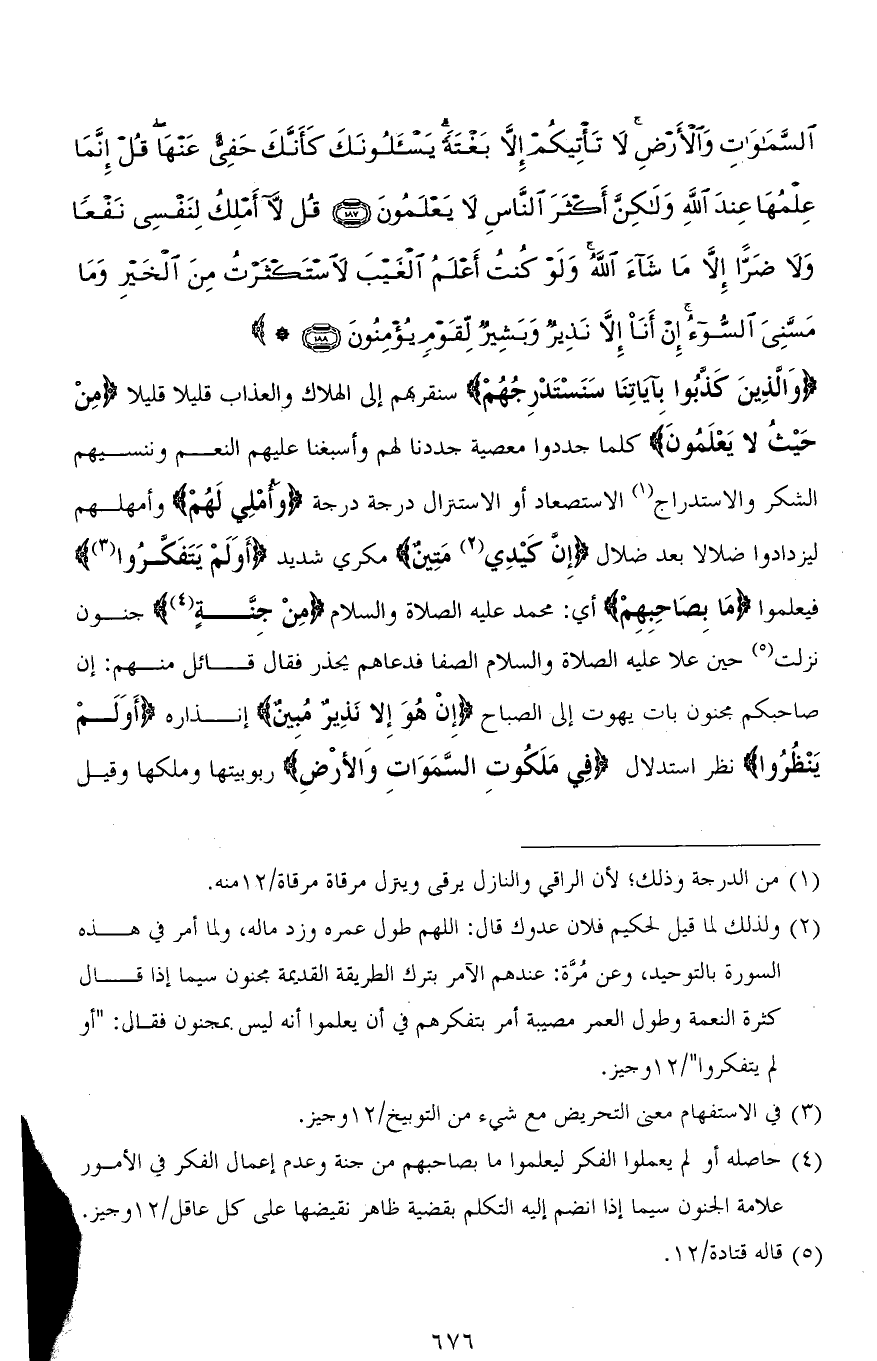 ٱلسَّمَٰوَٰتِ وَٱلْأَرْضِۚ لَا تَأْتِيكُمْ إِلَّا بَغْتَةًۗ يَسْـَٔلُونَكَ كَأَنَّكَ حَفِىٌّ عَنْهَاۖ قُلْ إِنَّمَا
عِلْمُهَا عِندَ ٱللَّهِ وَلَٰكِنَّ أَكْثَرَ ٱلنَّاسِ لَا يَعْلَمُونَ ١٨٧ قُل لَّآ أَمْلِكُ لِنَفْسِى نَفْعًا
وَلَا ضَرًّا إِلَّا مَا شَآءَ ٱللَّهُۚ وَلَوْ كُنتُ أَعْلَمُ ٱلْغَيْبَ لَٱسْتَكْثَرْتُ مِنَ ٱلْخَيْرِ وَمَا
مَسَّنِىَ ٱلسُّوٓءُۚ إِنْ أَنَا۠ إِلَّا نَذِيرٌ وَبَشِيرٌ لِّقَوْمٍ يُؤْمِنُونَ ١٨٨ * ﴾
﴿وَالَّذِينَ كَذَّبُوا بِآيَاتِنَا سَنَسْتَدْرِجُهُمْ﴾ سنقربهم إلى الهلاك والعذاب قليلا قليلا ﴿مِنْ
حَيْثُ لا يَعْلَمُونَ﴾ كلما جددوا معصية جددنا لهم وأسبغنا عليهم النعم وننسيهم
الشكر والاستدراج(١) الاستصعاد أو الاستنزال درجة درجة ﴿وَأُمْلِي لَهُمْ﴾ وأمهلهم
ليزدادوا ضلالا بعد ضلال ﴿إِنَّ كَيْدِي(٢) مَتِينٌ﴾ مكري شديد ﴿أَوَلَمْ يَتَفَكَّرُوا(٣)﴾
فيعلموا ﴿مَا بِصَاحِبِهِمْ﴾ أي: محمد عليه الصلاة والسلام ﴿مِنْ جِنَّةٍ(٤)﴾ جنون
نزلت(٥) حين علا عليه الصلاة والسلام الصفا فدعاهم يحذر فقال قائل منهم: إن
صاحبكم مجنون بات يهوت إلى الصباح ﴿إِنْ هُوَ إِلا نَذِيرٌ مُبِينٌ﴾ إنذاره ﴿أَوَلَمْ
يَنْظُرُوا﴾ نظر استدلال ﴿فِي مَلَكُوتِ السَّمَوَاتِ وَالأَرْضِ﴾ ربوبيتها وملكها وقيل
(١) من الدرجة وذلك؛ لأن الراقي والنازل يرقى وينزل مرقاة مرقاة/١٢منه.
(٢) ولذلك لما قيل لحكيم فلان عدوك قال: اللهم طول عمره وزد ماله، ولما أمر في هذه
السورة بالتوحيد، وعن مُرَّة: عندهم الآمر بترك الطريقة القديمة مجنون سيما إذا قال
كثرة النعمة وطول العمر مصيبة أمر بتفكرهم في أن يعلموا أنه ليس بمجنون فقال: "أو
لم يتفكروا"/١٢وجيز.
(٣) في الاستفهام معنى التحريض مع شيء من التوبيخ/١٢وجيز.
(٤) حاصله أو لم يعملوا الفكر ليعلموا ما بصاحبهم من جنة وعدم إعمال الفكر في الأمور
علامة الجنون سيما إذا انضم إليه التكلم بقضية ظاهر نقيضها على كل عاقل/١٢وجيز.
(٥) قاله قتادة/١٢.
٦٧٦